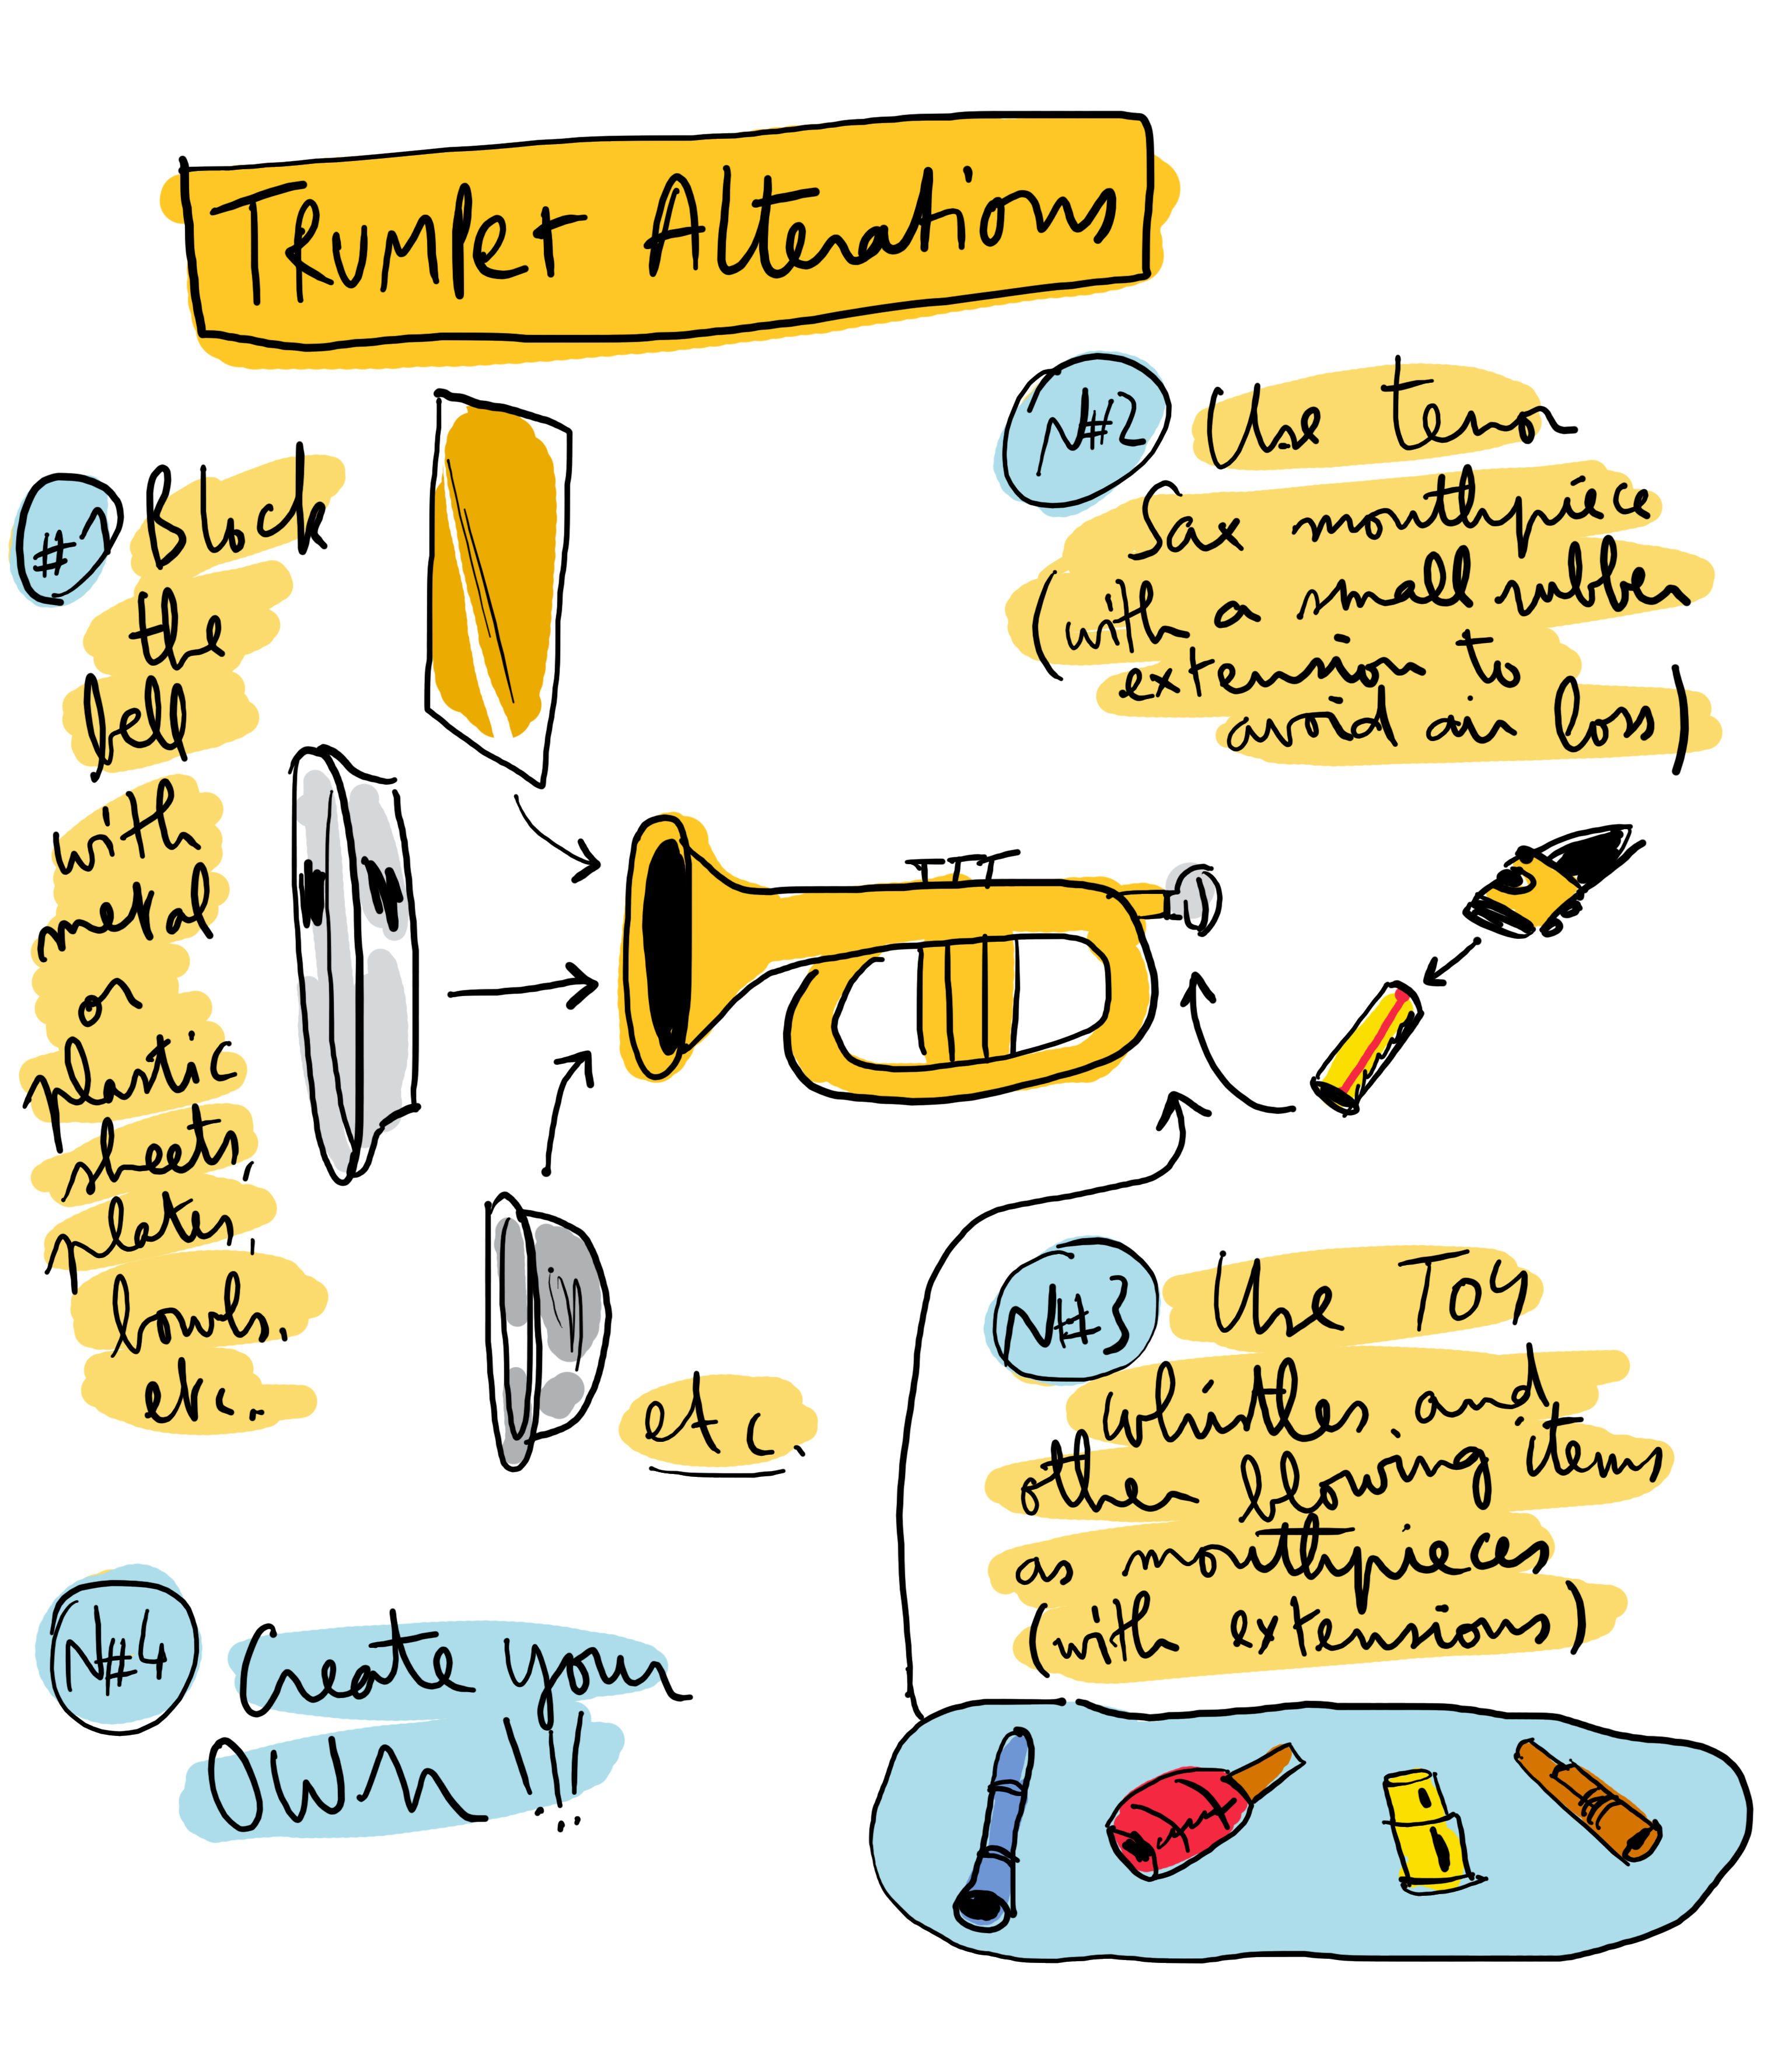 Trumpet Alterations
#1 Block
the
bell
with
metal
or
plastic
sheets,
plates,
bowls,
etc.
N#2 Use tenor
Sax mouthpiece
(with a small rubber
extension to
avoid air loss)
etc.
N#3 Use Toy
whistles and
other blowing items
as mouthpieces
(with extensions)
N#4 Create your
own!!!